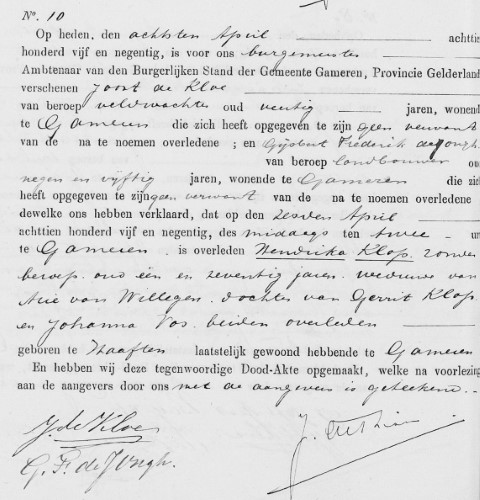 No. 10
Op heden, den achtsten April achttien
honderd vijf en negentig, is voor ons burgemeester
Ambtenaar van den Burgerlijken Stand der Gemeente Gameren, Provincie Gelderland
verschenen Joost de Kloe
van beroep veldwachter oud veertig jaren, wonende
te Gameren die zich heeft opgegeven te zijn geen verwant
van de na te noemen overledene; en Gijsbert Frederik de Jongh
van beroep landbouwer oud
negen en vijftig jaren, wonende te Gameren die zich
heeft opgegeven te zijn geen verwant van de na te noemen overledene
dewelke ons hebben verklaard, dat op den zesden April
achttien honderd vijf en negentig, des middags ten twee ur
te Gameren is overleden Hendrika Klop zonder
beroep oud een en zeventig jaren weduwe van
Arie van Willegen dochter van Gerrit Klop
en Johanna Vos beiden overleden
geboren te Haaften laatstelijk gewoond hebbende te Gameren
En hebben wij deze tegenwoordige Dood-Akte opgemaakt, welke na voorlezing
aan de aangevers door ons met de aangevers is geteekend.
J. de Kloe
G. F. de Jongh.